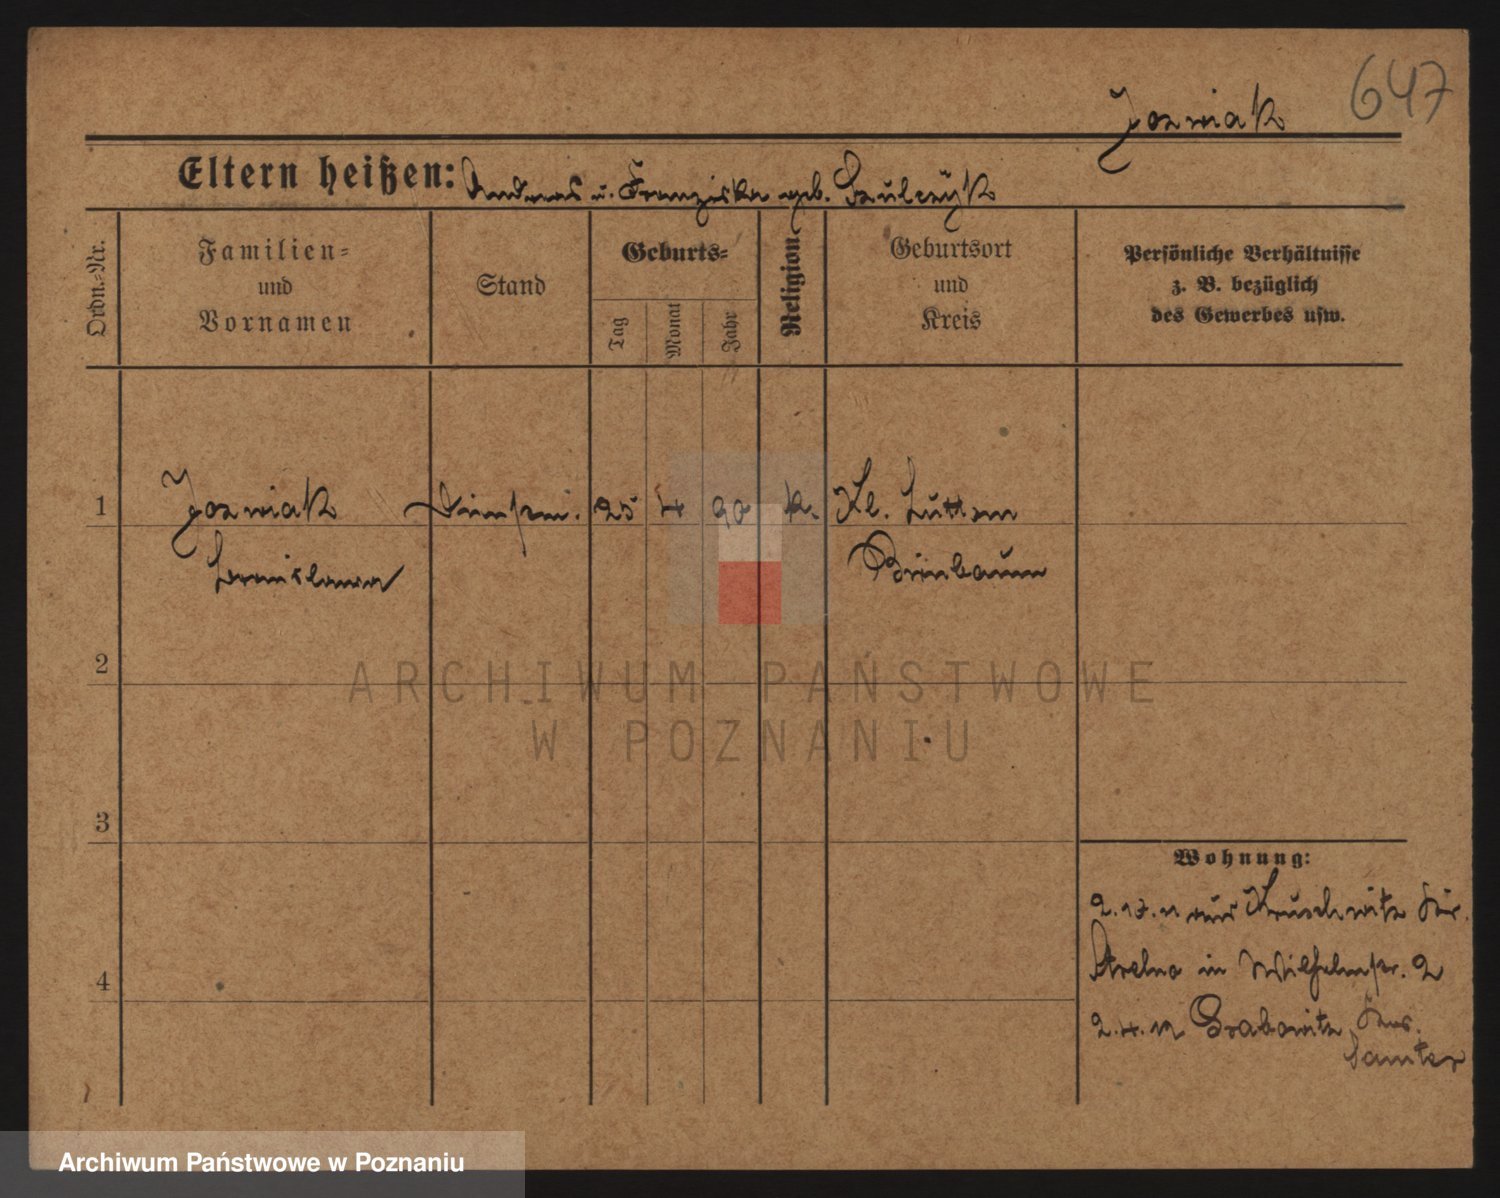 647
Jozwiak
Eltern heißen: Andreas u. Franziska geb.
Ordn.-Nr.
Familien-
und
Vornamen
Stand
Geburts-
Tag
Monat
Jahr
Religion
Geburtsort
und
Kreis
Persönliche Verhältnisse
z. B. bezüglich
des Gewerbes usw.
1 Jozwiak 25 4 90 k. Kl. Luttom
Birnbaum
2
3
4
Wohnung:
aus Kruschwitz Kr.
Strelno in Wilhelmstr. 2
2.4.12 Grabowitz Krs.
Samter
ARCHIWUM PAŃSTWOWE
W POZNANIU
Archiwum Państwowe w Poznaniu